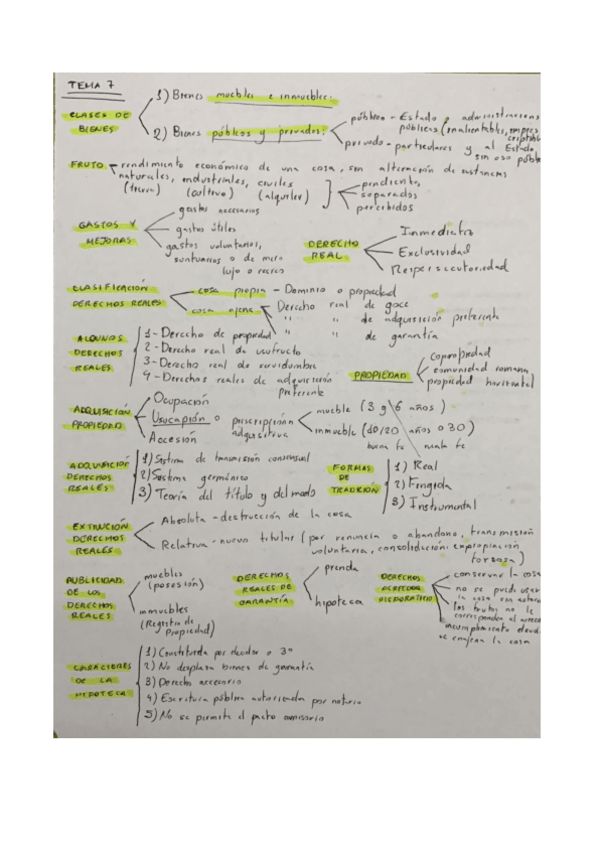 TEMA 7
CLASES DE BIENES
1) Bienes muebles e inmuebles.
2) Bienes públicos y privados:
público - Estado y administraciones
públicas (inalienables, impres
criptibl
privado - particulares y al Estado,
sin uso públi
FRUTO - rendimiento económico de una cosa, sin alteración de sustancias
naturales, industriales, civiles
(tierra) (cultivo) (alquiler)
pendientes
separados
percibidos
GASTOS Y MEJORAS
gastos necesarios
gastos útiles
gastos voluntarios,
suntuarios o de mero
lujo o recreo
DERECHO REAL
Inmediatez
Exclusividad
Reipersecutoriedad
CLASIFICACIÓN DERECHOS REALES
cosa propia - Dominio o propiedad
cosa ajena
Derecho real de goce
" " de adquisición preferente
" " de garantía
ALGUNOS DERECHOS REALES
1 - Derecho de propiedad
2 - Derecho real de usufructo
3 - Derecho real de servidumbre
4 - Derechos reales de adquisición
preferente
PROPIEDAD
copropiedad
comunidad romana
propiedad horizontal
ADQUISICIÓN PROPIEDAD
Ocupación
Usucapión o prescripción
adquisitiva
Accesión
mueble (3 y 6 años)
inmueble (10/20 años o 30)
buena fe mala fe
ADQUISICIÓN DERECHOS REALES
1) Sistema de transmisión consensual
2) Sistema germánico
3) Teoría del título y del modo
FORMAS DE TRADICIÓN
1) Real
2) Fingida
3) Instrumental
EXTINCIÓN DERECHOS REALES
Absoluta - destrucción de la cosa
Relativa - nuevo titular (por renuncia o abandono, transmisión
voluntaria, consolidación, expropiación
forzosa)
PUBLICIDAD DE LOS DERECHOS REALES
muebles
(posesión)
inmuebles
(Registro de
Propiedad)
DERECHOS REALES DE GARANTÍA
prenda
hipoteca
DERECHOS
conservar la cosa
no se puede usar
la cosa sin
los frutos no le
corresponden al
incumplimiento
se enajena la cosa
CARACTERES DE LA HIPOTECA
1) Constituida por deudor o 3º
2) No desplaza bienes de garantía
3) Derecho accesorio
4) Escritura pública autorizada por notario
5) No se permite el pacto comisorio